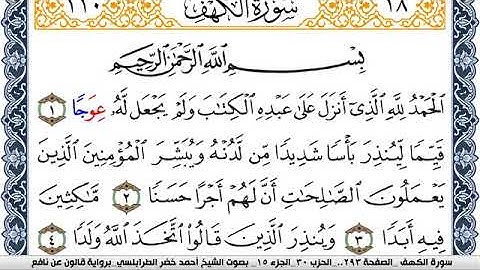 ١١٠ سُورَةُ الْكَهْفِ ١٨
بِسْمِ اللَّهِ الرَّحْمَٰنِ الرَّحِيمِ
الْحَمْدُ لِلَّهِ الَّذِي أَنزَلَ عَلَىٰ عَبْدِهِ الْكِتَابَ وَلَمْ يَجْعَل لَّهُ عِوَجًا ١
قَيِّمًا لِّيُنذِرَ بَأْسًا شَدِيدًا مِّن لَّدُنْهُ وَيُبَشِّرَ الْمُؤْمِنِينَ الَّذِينَ
يَعْمَلُونَ الصَّالِحَاتِ أَنَّ لَهُمْ أَجْرًا حَسَنًا ٢ مَّاكِثِينَ
فِيهِ أَبَدًا ٣ وَيُنذِرَ الَّذِينَ قَالُوا اتَّخَذَ اللَّهُ وَلَدًا ٤
سورة الكهف _الصفحة ٢٩٣... الحزب ٣٠_الجزء ١٥_ بصوت الشيخ أحمد خضر الطرابلسي_برواية قالون عن نافع